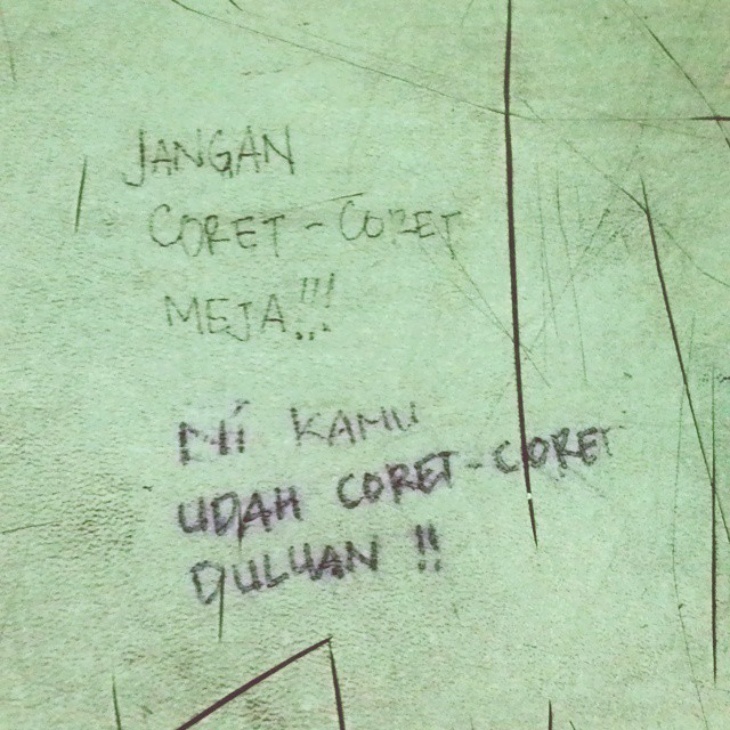 JANGAN
CORET-CORET
MEJA!!!
Ni KAMU
UDAH CORET-CORET
DULUAN !!